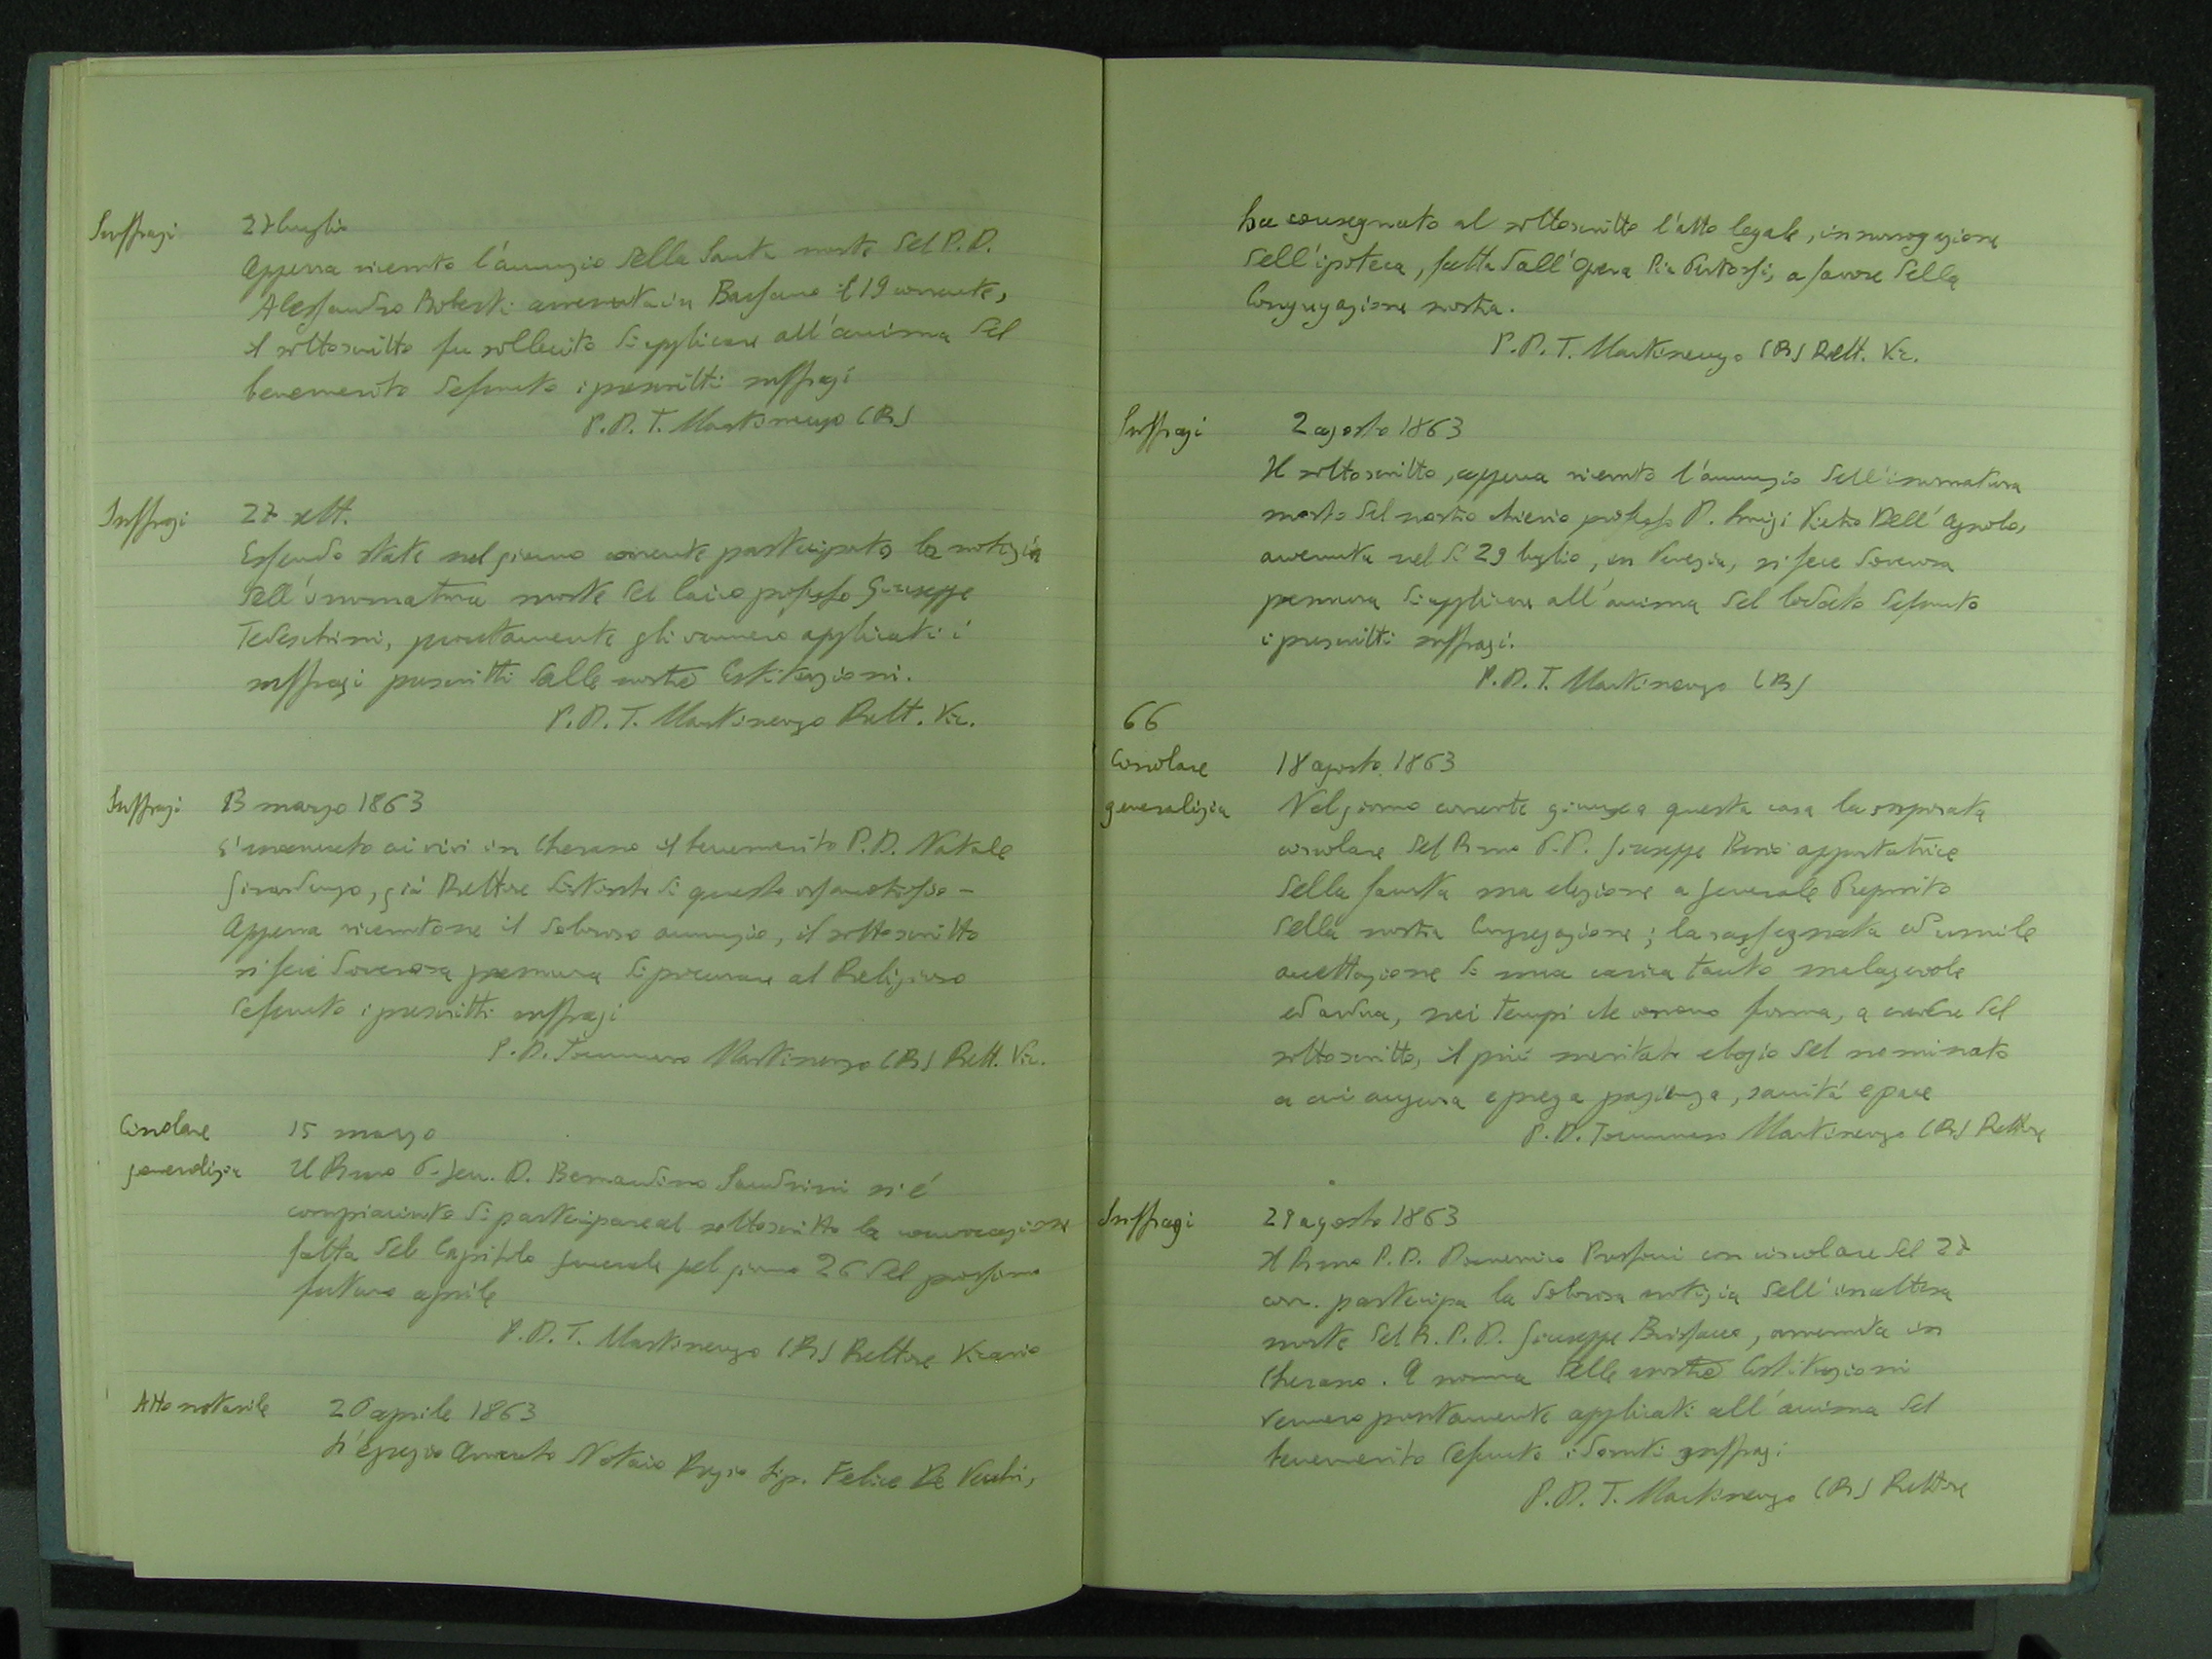 Suffragi
27 luglio
Appena ricevuto l'annunzio della santa morte del P.D.
Alessandro Roberti avvenuta in Bassano il 19 corrente,
il sottoscritto fu sollecito di applicare all'anima del
benemerito defunto i prescritti suffragi
P.D.T. Martinengo (Rs)
Suffragi
27 sett.
Essendo stata nel giorno corrente participata la notizia
dell'immatura morte del laico professo Giuseppe
Tedeschini, prontamente gli vennero applicati i
suffragi prescritti dalle nostre Costituzioni.
P.D.T. Martinengo Rett. Vic.
Suffragi
13 marzo 1863
È mancato ai vivi in Cherasco il benemerito P.D. Natale
Girardengo, già Rettore distinto di questo orfanotrofio -
Appena ricevutone il doloroso annunzio, il sottoscritto
si fece doverosa premura di procurare al Religioso
defunto i prescritti suffragi
P.D. Tommaso Martinengo (Rs) Rett. Vic.
Circolare
generalizia
15 marzo
Il Rmo P. Gen. D. Bernardino Sandrini si è
compiaciuto di partecipare al sottoscritto la convocazione
fatta del Capitolo generale pel giorno 26 del prossimo
futuro aprile
P.D.T. Martinengo (Rs) Rettore Vicario
Atto notarile
20 aprile 1863
L'egregio Avvocato Notaio Regio Sig. Felice De Vecchi,
ha consegnato al sottoscritto l'atto legale, in surrogazione
dell'ipoteca, fatta dall'Opera Pia a favore della
Congregazione nostra.
P.D.T. Martinengo (Rs) Rett. Vic.
Suffragi
2 agosto 1863
Il sottoscritto, appena ricevuto l'annunzio dell'immatura
morte del nostro chierico professo D. Luigi Pietro Dell'Agnolo,
avvenuta nel dì 29 luglio, in Venezia, si fece doverosa
premura di applicare all'anima del lodato defunto
i prescritti suffragi.
P.D.T. Martinengo (Rs)
66
Circolare
generalizia
18 agosto 1863
Nel giorno corrente giunse a questa casa la sospirata
circolare del Rmo P.D. Giuseppe Besio apportatrice
della fausta sua elezione a Generale Preposito
della nostra Congregazione; la rassegnata ed umile
accettazione di una carica tanto malagevole
ed ardua, nei tempi che corrono forma, a credere del
sottoscritto, il più meritato elogio del nominato
a cui augura e prega pazienza, sanità e pace
P.D. Tommaso Martinengo (Rs) Rettore
Suffragi
29 agosto 1863
Il Rmo P.D. Domenico Pressoni con circolare del 27
corr. partecipa la dolorosa notizia dell'inattesa
morte del R.P.D. Giuseppe avvenuta in
Cherasco. A norma delle nostre Costituzioni
vennero prontamente applicati all'anima del
benemerito defunto i dovuti suffragi
P.D.T. Martinengo (Rs) Rettore